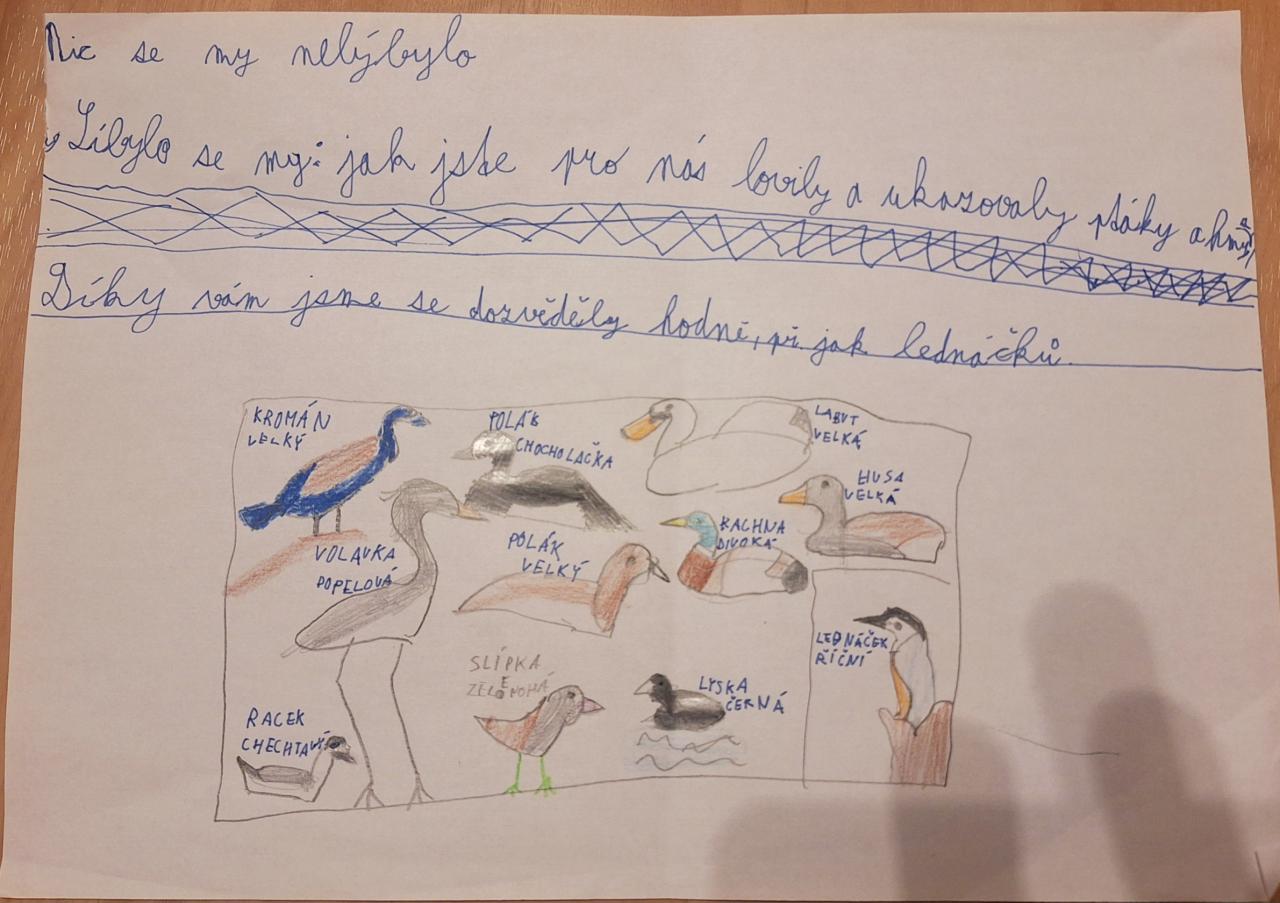 Nic se my nelýbylo
Líbylo se my: jak jste pro nás lovily a ukazovaly ptáky a hmyz
Díky vám jsme se dozvěděly hodně, př. jak ledňáčků.
KROMÁN
VELKÝ
POLÁK
CHOCHOLAČKA
LABUT
VELKÁ
HUSA
VELKÁ
VOLAVKA
POPELOVÁ
POLÁK
VELKÝ
KACHNA
DIVOKÁ
LEDNÁČEK
ŘÍČNÍ
SLÍPKA
ZELENOHÁ
LYSKA
ČERNÁ
RACEK
CHECHTAVÝ